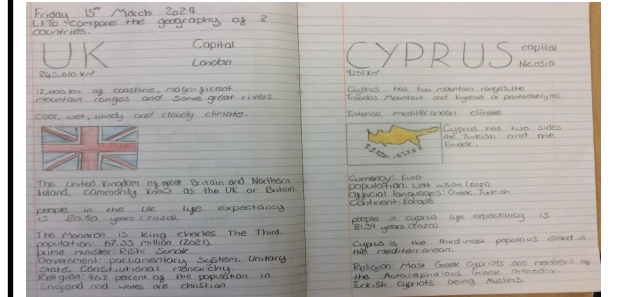 Friday 15th March 2024
L.I. To compare the geography of 2
countries.
UK
Capital
London
243.610 km²
12,000 km of coastline, magnificent
mountain ranges and some great rivers.
Cool, wet, windy and cloudy climate.
The United Kingdom of great Britain and Northern
Ireland, commonly know as the UK or Britain.
people in the UK life expectancy
is 80.90 years (2020).
The Monarch is King Charles The Third.
population: 67.33 million (2021).
prime minister: Rishi Sunak
Government: parliamentary System. Unitary
State, Constitutional monarchy.
Religion: 46.2 percent of the population in
England and Wales are christian
CYPRUS
capital
Nicosia
9251 km²
Cyprus has two mountain ranges, the
Troodos Mountain and Kyrenia or
Intense Mediterranean climate
Cyprus has two sides
the Turkish and the
Greek.
Currency: Euro
population: 1.244 million (2021)
Official languages: Greek, Turkish
Continent: Europe
people in cyprus life expectancy is
81.39 years (2020)
Cyprus is the third-most populous island in
the mediterranean.
Religion: Most Greek Cypriots are members of
the Autocephalous Greek Orthodox.
Turkish Cypriots being Muslims.